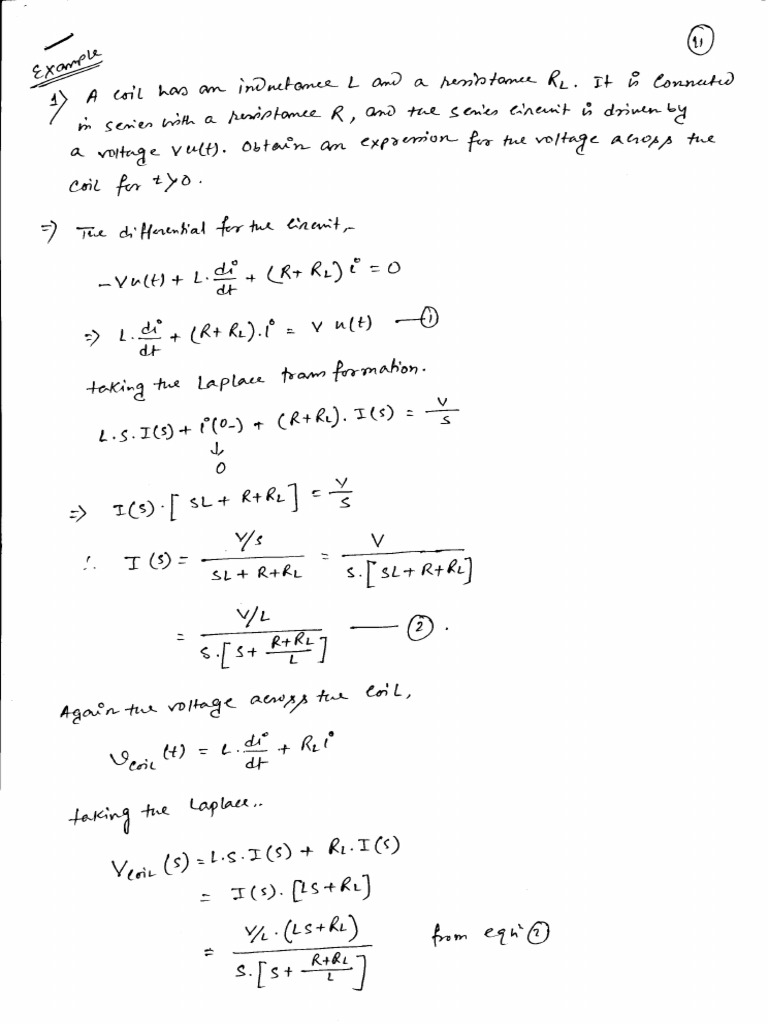 21
Example
1) A coil has an inductance L and a resistance RL. It is connected
in series with a resistance R, and the series circuit is driven by
a voltage Vu(t). Obtain an expression for the voltage across the
coil for t>0.
=> The differential for the circuit,-
-Vu(t) + L. di/dt + (R+RL) i = 0
=> L. di/dt + (R+RL).i = V u(t) — ①
taking the Laplace transformation.
L.S.I(S) + i(0-) + (R+RL). I(S) = V/S
↓
0
=> I(S).[SL + R+RL] = V/S
∴ I(S) = (V/S)/(SL + R+RL) = V/(S.[SL + R+RL])
= (V/L)/(S.[S + (R+RL)/L]) — ②.
Again the voltage across the coil,
Vcoil (t) = L. di/dt + RL i
taking the Laplace..
Vcoil (S) = L.S.I(S) + RL.I(S)
= I(S). [LS+RL]
= (V/L.(LS+RL))/(S.[S + (R+RL)/L]) from eqn ②